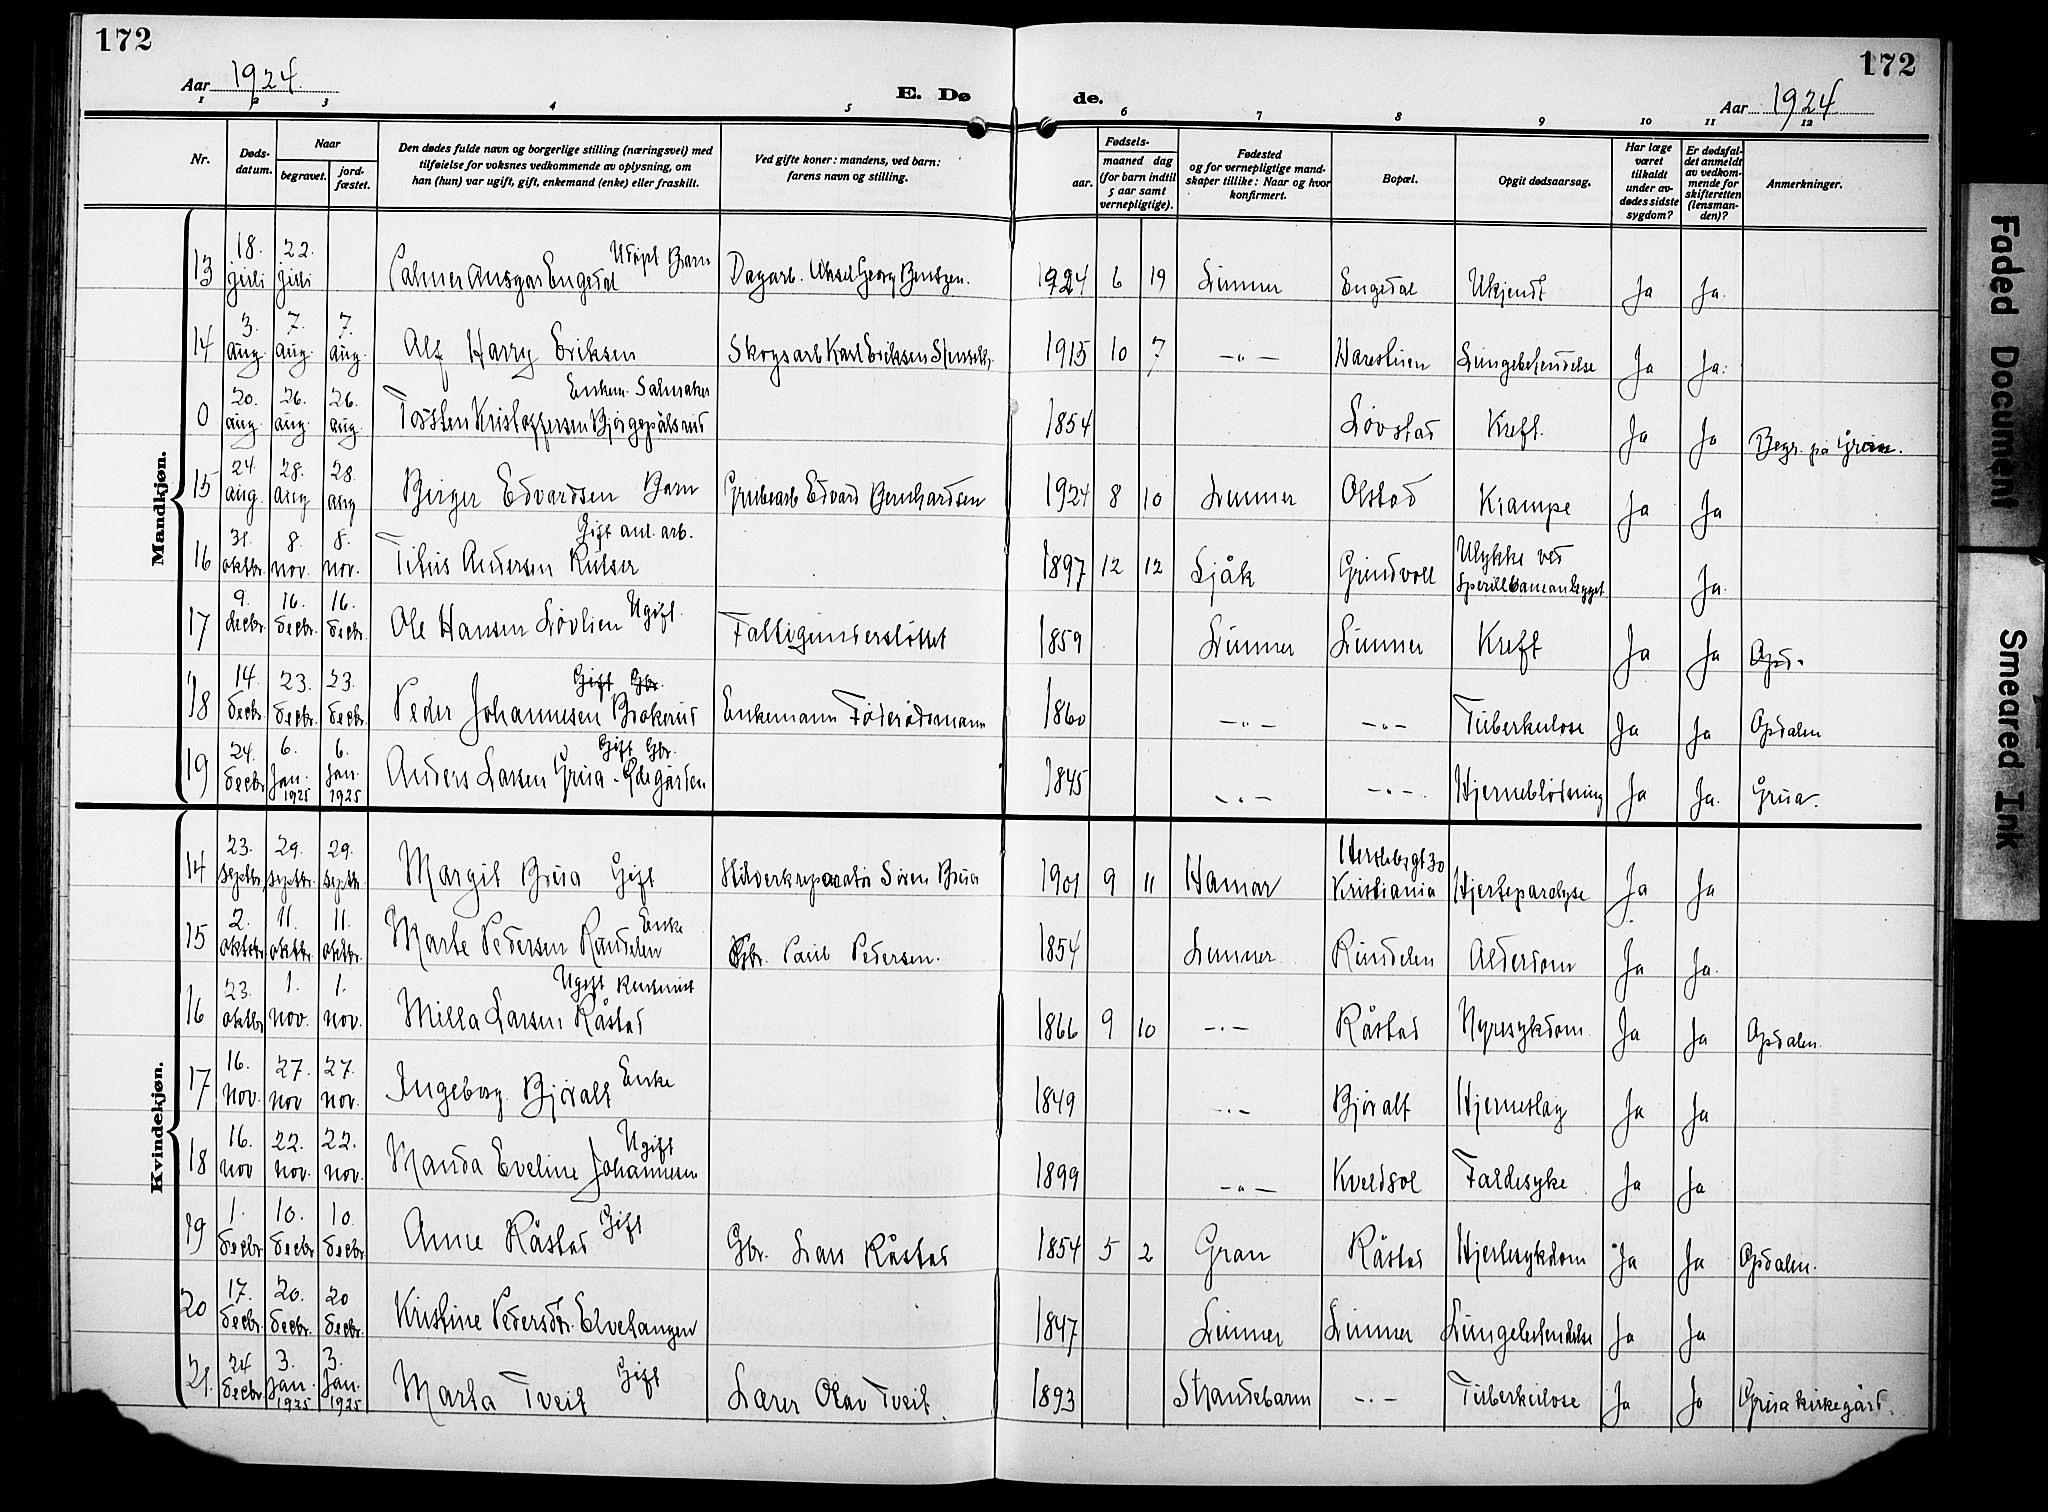 172
172
Aar 1924.
E. Dø de.
Aar 1924
1 2 3 4 5 6 7 8 9 10 11 12
Nr. | Døds-datum. | Naar begravet. | jord-fæstet. | Den dødes fulde navn og borgerlige stilling (næringsvei) med tilføielse for voksnes vedkommende av oplysning, om han (hun) var ugift, gift, enkemand (enke) eller fraskilt. | Ved gifte koner: mandens, ved barn: farens navn og stilling. | Fødsels- aar. | maaned dag (for barn indtil 5 aar samt vernepligtige). | Fødested og for vernepligtige mand-skaper tillike: Naar og hvor konfirmert. | Bopæl. | Opgit dødsaarsag. | Har læge været tilkaldt under av-dødes sidste sygdom? | Er dødsfal-det anmeldt av vedkom-mende for skifteretten (lensman-den)? | Anmerkninger.
Mandkjøn.
13 | 18. juli | 22. juli | | Palmer Ansgar Engedal Udøpt Barn | Dagarb. Aksel Georg Bentzen. | 1924 | 6 | 19 | Lunner | Engedal | Ukjendt | Ja | Ja.
14 | 3. aug. | 7. aug. | 7. aug. | Alf Harry Eriksen | Skogsarb Karl Eriksen | 1915 | 10 | 7 | -"- | Harestuen | Lungebetendelse | Ja | Ja.
0 | 20. aug. | 26. aug. | 26. aug. | Enkem. Salmaker Torsten Kristoffersen Bjørgepålsrud | | 1854 | | | | Løvstad | Kreft. | Ja | Ja | Begr. på Gran.
15 | 24. aug. | 28. aug | 28. aug | Birger Edvardsen Barn | Grubearb Edvard Bernhardsen | 1924 | 8 | 10 | Lunner | Olstad | Krampe | Ja | Ja
16 | 31. oktbr. | 8. nov. | 8. nov. | Gift anl. arb. Titus Andersen | | 1897 | 12 | 12 | Skjåk | Grindvoll | Ulykke ved | | Ja.
17 | 9. decbr. | 16. decbr. | 16. decbr. | Ole Hansen Løvlien Ugift. | Fattigunderstøttet | 1859 | | | Lunner | Lunner | Kreft | Ja | Ja | Opd.
18 | 14. decbr. | 23. decbr. | 23. decbr. | Gift Gbr. Peder Johannesen Brokerud | Enkemann Føderådsmann | 1860 | | | -"- | -"- | Tuberkulose | Ja | Ja | Opdalen
19 | 24. decbr | 6. Jan. 1925 | 6. Jan. 1925 | Gift Gbr. Anders Larsen Grua-Ødegården | | 1845 | | | -"- | -"- | Hjerneblødning | Ja | Ja. | Grua.
Kvindekjøn.
14 | 23. septbr. | 29. septbr. | 29. septbr. | Margit Grua Gift | Grua | 1901 | 9 | 11 | Hamar | Herslebsgt 30 Kristiania | Hjerteparalyse | Ja | Ja
15 | 2. oktbr. | 11. oktbr. | 11. oktbr. | Marte Pedersen Rundelen Enke | Gbr. Paul Pedersen. | 1854 | | | Lunner | Rundelen | Alderdom | Ja | Ja.
16 | 23. oktbr | 1. nov. | 1. nov. | Ugift Milla Larsen Råstad | | 1866 | 9 | 10 | -"- | Råstad | Nyresykdom. | Ja | Ja | Opdalen.
17 | 16. nov. | 27. nov | 27. nov. | Ingeborg Bjøralt Enke | | 1849 | | | -"- | Bjøralt | Hjerneslag | Ja | Ja
18 | 16. nov | 22. nov. | 22. nov. | Manda Eveline Johannesen Ugift | | 1899 | | | -"- | Kveldsol | Faldesyke. | Ja | Ja
19 | 1. decbr | 10. decbr | 10. decbr | Anne Råstad Gift | Gbr. Lars Råstad | 1854 | 5 | 2 | Gran | Råstad | Hjertesykdom | Ja | Ja | Opdalen.
20 | 17. decbr. | 20. decbr. | 20 decbr. | Kristine Pedersdtr. Elvetangen | | 1847 | | | Lunner | Lunner | Lungebetendelse | Ja | Ja
21. | 24 decbr. | 3. Jan. 1925 | 3. Jan. 1925 | Marta Tveit Gift | Lærer Olav Tveit. | 1893 | | | Strandebarm | -"- | Tuberkulose | Ja | Ja | Grua kirkegård.
Faded Document
Smeared Ink